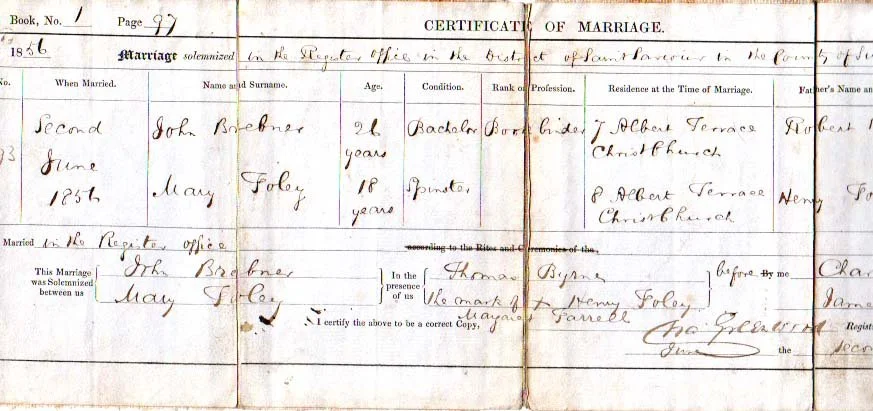 Book, No. 1 Page 97 CERTIFICATE OF MARRIAGE.
1856 Marriage solemnized in the Register office in the District of Saint Saviour in the County of
No. When Married. Name and Surname. Age. Condition. Rank or Profession. Residence at the Time of Marriage. Father's Name an
Second John Brebner 26 Bachelor Book binder 7 Albert Terrace Robert
93 June years Christ Church
1856 Mary Foley 18 Spinster 8 Albert Terrace Henry Fo
years Christ Church
Married in the Register office according to the Rites and Ceremonies of the,
This Marriage was Solemnized between us John Brebner In the presence of us Thomas Byrne before By me Char
Mary Foley the mark of x Henry Foley Jame
Margaret Farrell
I certify the above to be a correct Copy, Regist
June the Secon